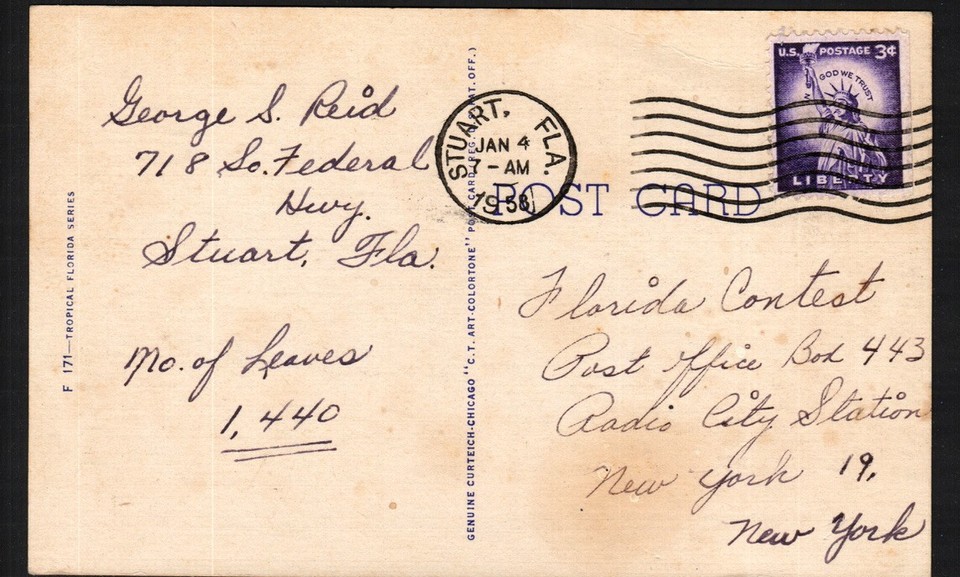 George S. Reid
718 So. Federal
Hwy.
Stuart, Fla.
No. of Leaves
1,440
F 171—TROPICAL FLORIDA SERIES
GENUINE CURTEICH-CHICAGO "C.T. ART-COLORTONE" POST CARD (REG. U.S. PAT. OFF.)
STUART, FLA.
JAN 4
7-AM
1958
POST CARD
U.S. POSTAGE 3¢
IN GOD WE TRUST
LIBERTY
Florida Contest
Post Office Box 443
Radio City Station
New York 19,
New York